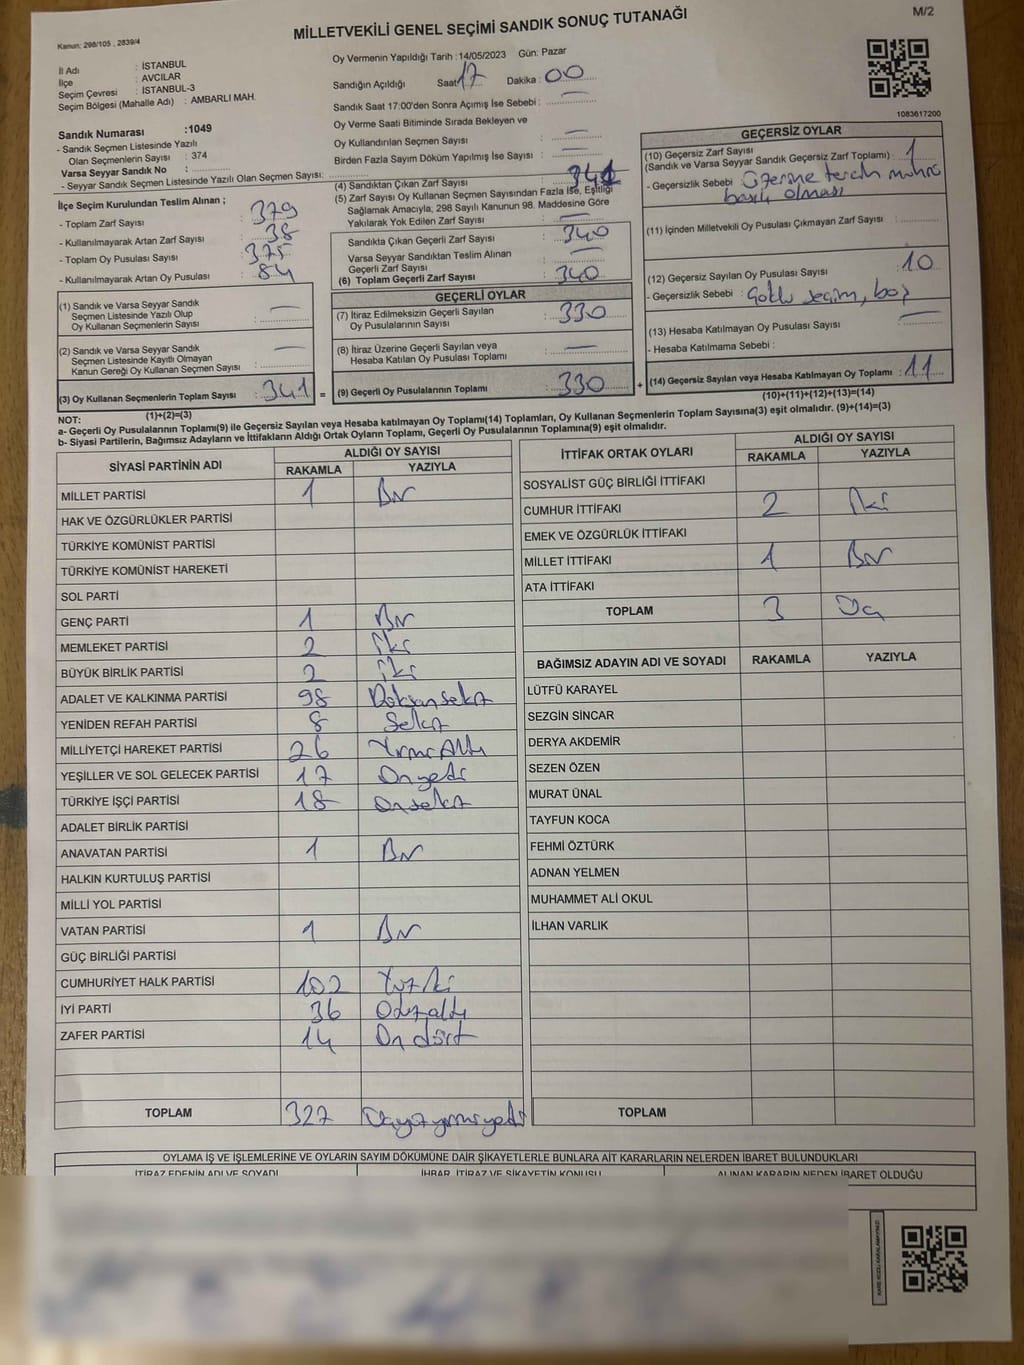 M/2
MİLLETVEKİLİ GENEL SEÇİMİ SANDIK SONUÇ TUTANAĞI
Kanun; 298/105 , 2839/4
İl Adı : İSTANBUL
İlçe : AVCILAR
Seçim Çevresi : İSTANBUL-3
Seçim Bölgesi (Mahalle Adı) : AMBARLI MAH.
Sandık Numarası :1049
- Sandık Seçmen Listesinde Yazılı
Olan Seçmenlerin Sayısı : 374
Varsa Seyyar Sandık No :
- Seyyar Sandık Seçmen Listesinde Yazılı Olan Seçmen Sayısı:
Oy Vermenin Yapıldığı Tarih :14/05/2023 Gün: Pazar
Sandığın Açıldığı Saat: 17 Dakika : 00
Sandık Saat 17:00'den Sonra Açılmış İse Sebebi : —
Oy Verme Saati Bitiminde Sırada Bekleyen ve
Oy Kullandırılan Seçmen Sayısı : —
Birden Fazla Sayım Döküm Yapılmış İse Sayısı : —
1083617200
İlçe Seçim Kurulundan Teslim Alınan ;
- Toplam Zarf Sayısı : 379
- Kullanılmayarak Artan Zarf Sayısı : 38
- Toplam Oy Pusulası Sayısı : 375
- Kullanılmayarak Artan Oy Pusulası : 84
(1) Sandık ve Varsa Seyyar Sandık
Seçmen Listesinde Yazılı Olup
Oy Kullanan Seçmenlerin Sayısı : —
(2) Sandık ve Varsa Seyyar Sandık
Seçmen Listesinde Kayıtlı Olmayan
Kanun Gereği Oy Kullanan Seçmen Sayısı : —
(3) Oy Kullanan Seçmenlerin Toplam Sayısı : 341
(1)+(2)=(3)
(4) Sandıktan Çıkan Zarf Sayısı : 341
(5) Zarf Sayısı Oy Kullanan Seçmen Sayısından Fazla İse, Eşitliği
Sağlamak Amacıyla, 298 Sayılı Kanunun 98. Maddesine Göre
Yakılarak Yok Edilen Zarf Sayısı : —
Sandıkta Çıkan Geçerli Zarf Sayısı : 340
Varsa Seyyar Sandıktan Teslim Alınan
Geçerli Zarf Sayısı : —
(6) Toplam Geçerli Zarf Sayısı : 340
GEÇERLİ OYLAR
(7) İtiraz Edilmeksizin Geçerli Sayılan
Oy Pusulalarının Sayısı : 330
(8) İtiraz Üzerine Geçerli Sayılan veya
Hesaba Katılan Oy Pusulası Toplamı : —
= (9) Geçerli Oy Pusulalarının Toplamı : 330 +
GEÇERSİZ OYLAR
(10) Geçersiz Zarf Sayısı
(Sandık ve Varsa Seyyar Sandık Geçersiz Zarf Toplamı) : 1
- Geçersizlik Sebebi : Üzerine tercih mührü
basılı olması
(11) İçinden Milletvekili Oy Pusulası Çıkmayan Zarf Sayısı :
(12) Geçersiz Sayılan Oy Pusulası Sayısı : 10
- Geçersizlik Sebebi : Çoklu seçim, boş
(13) Hesaba Katılmayan Oy Pusulası Sayısı : —
- Hesaba Katılmama Sebebi :
(14) Geçersiz Sayılan veya Hesaba Katılmayan Oy Toplamı : 11
(10)+(11)+(12)+(13)=(14)
NOT:
a- Geçerli Oy Pusulalarının Toplamı(9) ile Geçersiz Sayılan veya Hesaba katılmayan Oy Toplamı(14) Toplamları, Oy Kullanan Seçmenlerin Toplam Sayısına(3) eşit olmalıdır. (9)+(14)=(3)
b- Siyasi Partilerin, Bağımsız Adayların ve İttifakların Aldığı Ortak Oyların Toplamı, Geçerli Oy Pusulalarının Toplamına(9) eşit olmalıdır.
SİYASİ PARTİNİN ADI ALDIĞI OY SAYISI
RAKAMLA YAZIYLA
MİLLET PARTİSİ 1 Bir
HAK VE ÖZGÜRLÜKLER PARTİSİ
TÜRKİYE KOMÜNİST PARTİSİ
TÜRKİYE KOMÜNİST HAREKETİ
SOL PARTİ
GENÇ PARTİ 1 Bir
MEMLEKET PARTİSİ 2 İki
BÜYÜK BİRLİK PARTİSİ 2 İki
ADALET VE KALKINMA PARTİSİ 98 Doksan sekiz
YENİDEN REFAH PARTİSİ 8 Sekiz
MİLLİYETÇİ HAREKET PARTİSİ 26 Yirmi Altı
YEŞİLLER VE SOL GELECEK PARTİSİ 17 On yedi
TÜRKİYE İŞÇİ PARTİSİ 18 On sekiz
ADALET BİRLİK PARTİSİ
ANAVATAN PARTİSİ 1 Bir
HALKIN KURTULUŞ PARTİSİ
MİLLİ YOL PARTİSİ
VATAN PARTİSİ 1 Bir
GÜÇ BİRLİĞİ PARTİSİ
CUMHURİYET HALK PARTİSİ 102 Yüz iki
İYİ PARTİ 36 Otuz altı
ZAFER PARTİSİ 14 On dört
TOPLAM 327 Üçyüz yirmi yedi
İTTİFAK ORTAK OYLARI ALDIĞI OY SAYISI
RAKAMLA YAZIYLA
SOSYALİST GÜÇ BİRLİĞİ İTTİFAKI
CUMHUR İTTİFAKI 2 İki
EMEK VE ÖZGÜRLÜK İTTİFAKI
MİLLET İTTİFAKI 1 Bir
ATA İTTİFAKI
TOPLAM 3 Üç
BAĞIMSIZ ADAYIN ADI VE SOYADI RAKAMLA YAZIYLA
LÜTFÜ KARAYEL
SEZGİN SİNCAR
DERYA AKDEMİR
SEZEN ÖZEN
MURAT ÜNAL
TAYFUN KOCA
FEHMİ ÖZTÜRK
ADNAN YELMEN
MUHAMMET ALİ OKUL
İLHAN VARLIK
TOPLAM
OYLAMA İŞ VE İŞLEMLERİNE VE OYLARIN SAYIM DÖKÜMÜNE DAİR ŞİKAYETLERLE BUNLARA AİT KARARLARIN NELERDEN İBARET BULUNDUKLARI
İTİRAZ EDENİN ADI VE SOYADI İHBAR, İTİRAZ VE ŞİKAYETİN KONUSU ALINAN KARARIN NEDEN İBARET OLDUĞU
KARE KODU KARALAMAYINIZ!